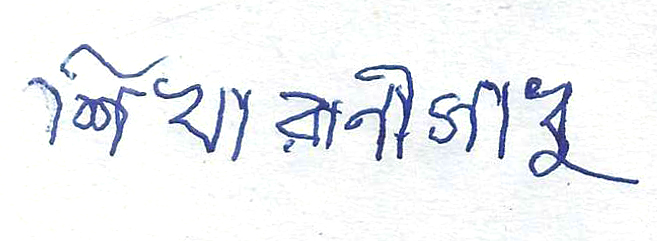 শিখা রানী সাধু